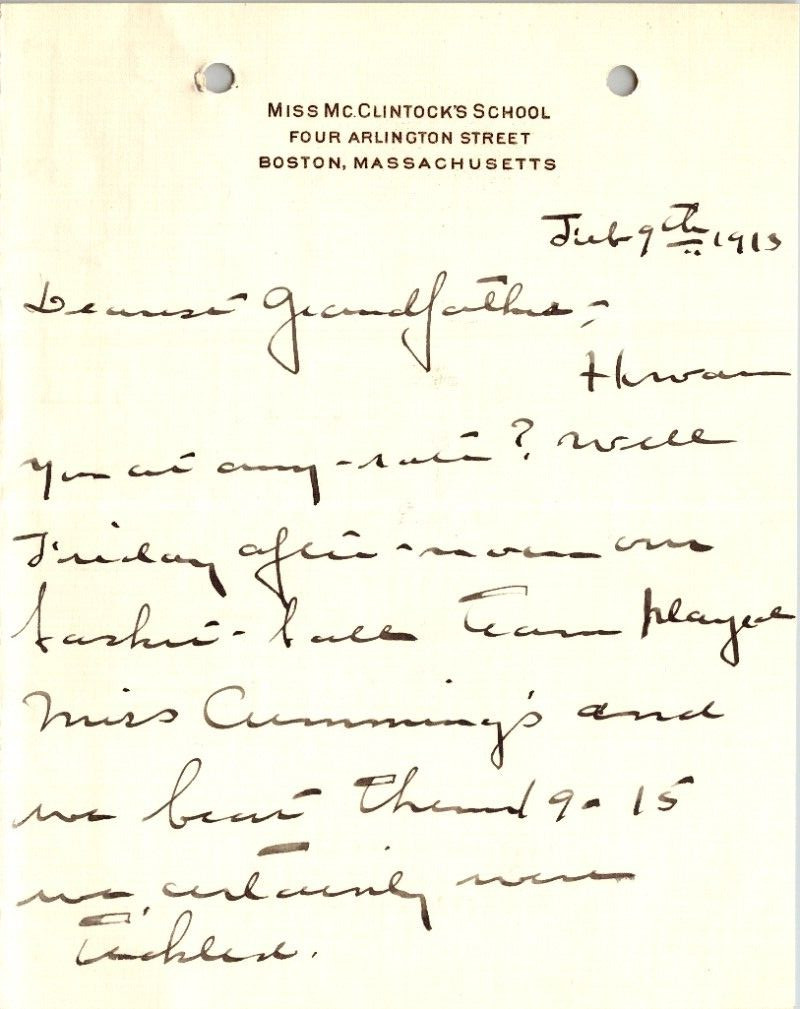 MISS MC.CLINTOCK'S SCHOOL
FOUR ARLINGTON STREET
BOSTON, MASSACHUSETTS
Feb 9th 1913
Dearest Grandfather,
How are
you at any-rate? Well
Friday after-noon our
basket-ball team played
Miss Cumming's and
we beat them 19-15
we certainly were
tickled.